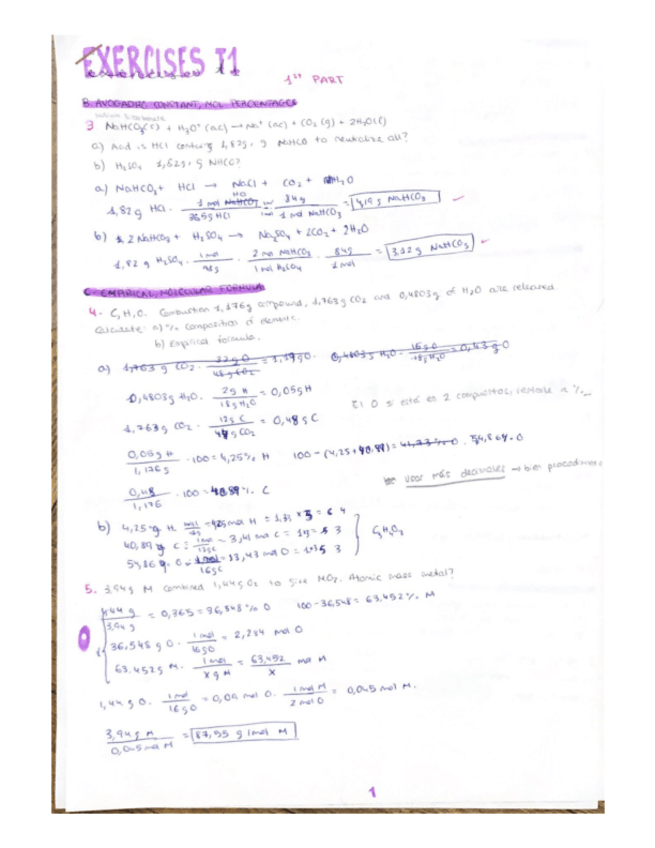 EXERCISES T1
1st PART
B. AVOGADRO CONSTANT, MOL PERCENTAGES
3 NaHCO3(s) + H3O+ (ac) → Na+ (ac) + CO2 (g) + 2H2O(l)
a) Acid is HCl 1,82g. g NaHCO to neutralize all?
b) H2SO4 1,82g. g
a) NaHCO3 + HCl → NaCl + CO2 + H2O
1,82 g HCl · 1 mol HCl / 36,5g HCl · 84g / 1 mol NaHCO3 = 4,19 g NaHCO3
b) 2 NaHCO3 + H2SO4 → Na2SO4 + 2CO2 + 2H2O
1,82 g H2SO4 · 1 mol / 98g · 2 mol NaHCO3 / 1 mol H2SO4 · 84g / 1 mol = 3,12 g NaHCO3
C. EMPIRICAL, MOLECULAR FORMULA
4. C, H, O. Combustion 1,176g compound, 1,763g CO2 and 0,4803g of H2O are released.
Calculate: a) % composition of
b) Empirical formula.
a) 1,763 g CO2 · = 1,19gO. 0,4803g H2O · 16g O / 18g H2O = 0,43 g O
0,4803g H2O · 2g H / 18g H2O = 0,05g H
El O si está en 2 compuestos, restarle a %
1,763g CO2 · 12g C / 44g CO2 = 0,48g C
0,05g H / 1,176g · 100 = 4,25% H 100 - (4,25+40,89) = 54,86% O
usar más decimales → bien
0,48 / 1,176 · 100 = 40,89% C
b) 4,25 g H = 1,33 × 3 = 4
40,89 g C : 1 mol / 12g C = 3,41 mol C = 3
54,86 g O · 1 mol / 16g = 3,43 mol O = 3
C3H4O3
5. 3,94g M combined 1,44g O2 to give MO2. Atomic mass metal?
1,44 g / 3,94 g = 0,365 = 36,548% O 100 - 36,548 = 63,452% M
36,548 g O · 1 mol / 16g O = 2,284 mol O
63,452g M · 1 mol / x g M = 63,452 / x mol M
1,44 g O · 1 mol / 16 g O = 0,09 mol O · 1 mol M / 2 mol O = 0,045 mol M.
3,94 g M / 0,045 mol M = 87,55 g/mol M
1